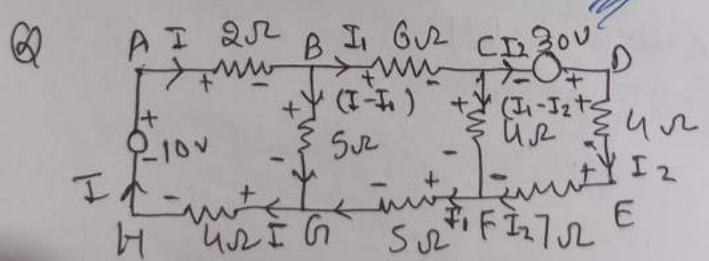 Q
A I 2Ω B I₁ 6Ω C I2 30V D
+ - + - - +
+ + (I-I₁) + (I₁-I₂) +
-10V 5Ω 4Ω 4Ω
- - - I2
I - + - + +
H 4Ω I G 5Ω I₁ F I₂ 7Ω E